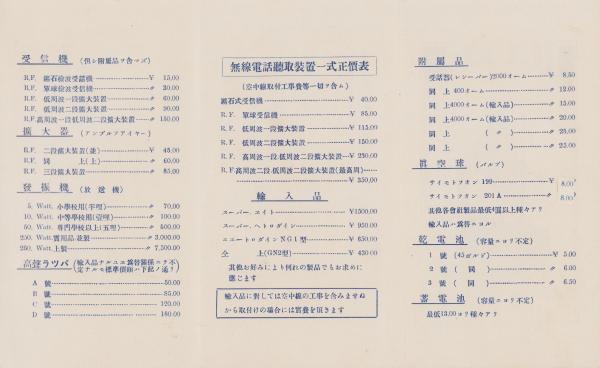 受信機 (但シ附屬品ヲ含マズ)
R.F. 鑛石檢波受話機 ¥ 15.00
R.F. 單球檢波受信機 〃 30.00
R.F. 低周波一段擴大裝置 〃 60.00
R.F. 低周波二段擴大裝置 〃 90.00
R.F. 高周波一段低周波二段擴大裝置 〃 150.00
擴大器 (アンプルフアイヤー)
R.F. 二段擴大裝置(並) ¥ 45.00
R.F. 同 上(上) 〃 60.00
R.F. 三段擴大裝置 〃 85.00
發振機 (放送機)
5. Watt. 小學校用(半哩) 〃 70.00
10. Watt. 中等學校用(壹哩) 〃 100.00
50. Watt. 專門學校以上(五哩) 〃 500.00
250. Watt. 實用品並製 〃 3,000.00
250. Watt. 上製 〃 7,500.00
高聲ラツパ (輸入品ナルユエ爲替關係ニテ不定ナルモ標準價額ハ下記ノ通リ)
A 號 50.00
B 號 85.00
C 號 120.00
D 號 180.00
無線電話聽取裝置一式正價表
(空中線取付工事費等一切ヲ含ム)
鑛石式受信機 ¥ 40.00
R.F. 單球受信機 ¥ 85.00
R.F. 低周波一段擴大裝置 ¥ 115.00
R.F. 低周波二段擴大裝置 ¥ 150.00
R.F. 高周波一段.低周波二段擴大裝置 ¥ 230.00
R.F. 高周波二段.低周波二段擴大裝置(最高周)
¥ 350.00
輸入品
スーパー.エイト ¥1500.00
スーパー.ヘトロダイン ¥ 950.00
ニュートロダインNG1型 ¥ 650.00
仝 上(GN2型) ¥ 430.00
其他お好みにより何れの製品でもお求めに
應じます
輸入品に對しては空中線の工事を含みませぬ
から取付けの場合には實費を頂きます
附屬品
受話器(レシーバー)2000オーム ¥ 8.50
同 上 400オーム 〃 12.00
同 上4000オーム(輸入品) 〃 15.00
同 上4000オーム( 〃 ) 〃 20.00
同 上 ( 〃 ) 〃 23.00
同 上 ( 〃 ) 〃 25.00
眞空球 (バルブ)
サイモトフオン 199 ¥ 8.00
サイモトフオン 201A 〃 8.00
其他各會社製品最低4圓以上種々アリ
輸入品ハ爲替ニヨル
乾電池 (容量ニヨリ不定)
1 號 (45ボルド) ¥ 5.00
2 號 ( 同 ) 〃 6.00
3 號 ( 同 ) 〃 6.50
蓄電池 (容量ニヨリ不定)
最低13.00ヨリ種々アリ